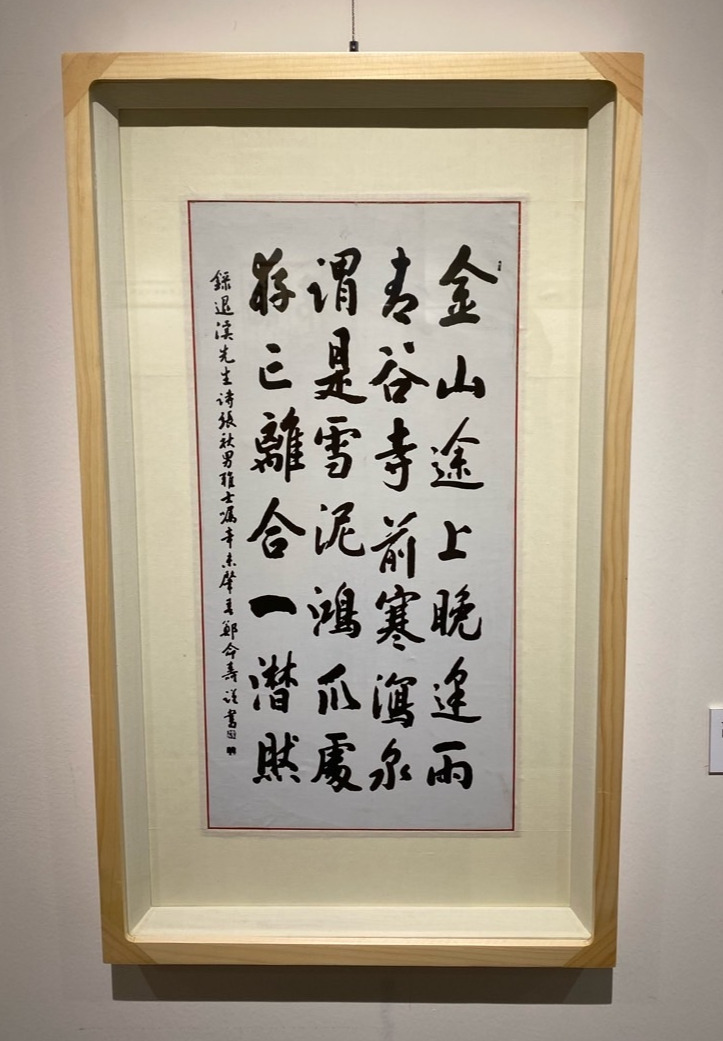 金山途上晚逢雨
青谷寺前寒瀉泉
謂是雪泥鴻爪處
存亡離合一潸然
錄退溪先生詩張秋男雅士囑辛未肇夏鄭命壽謹書